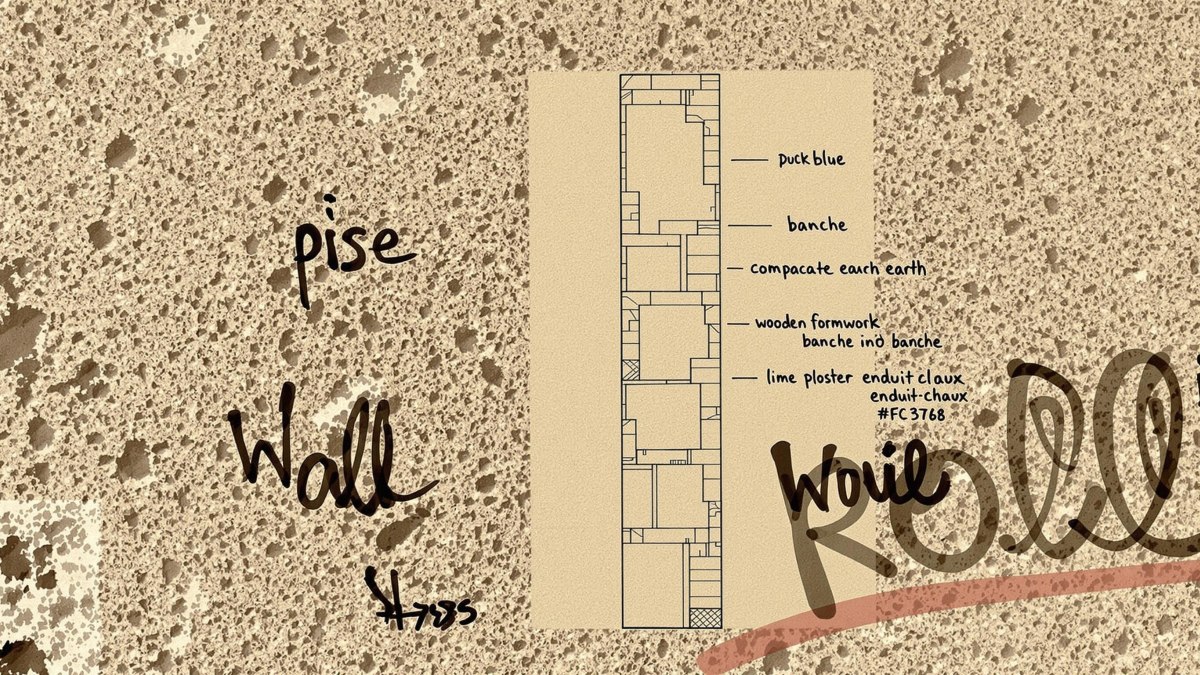 pise
Wall
puck blue
banche
compacate eaırch earth
wooden formwork
banche inò banche
lime ploster enduit claux
enduit-chaux
#FC3768
Woıil